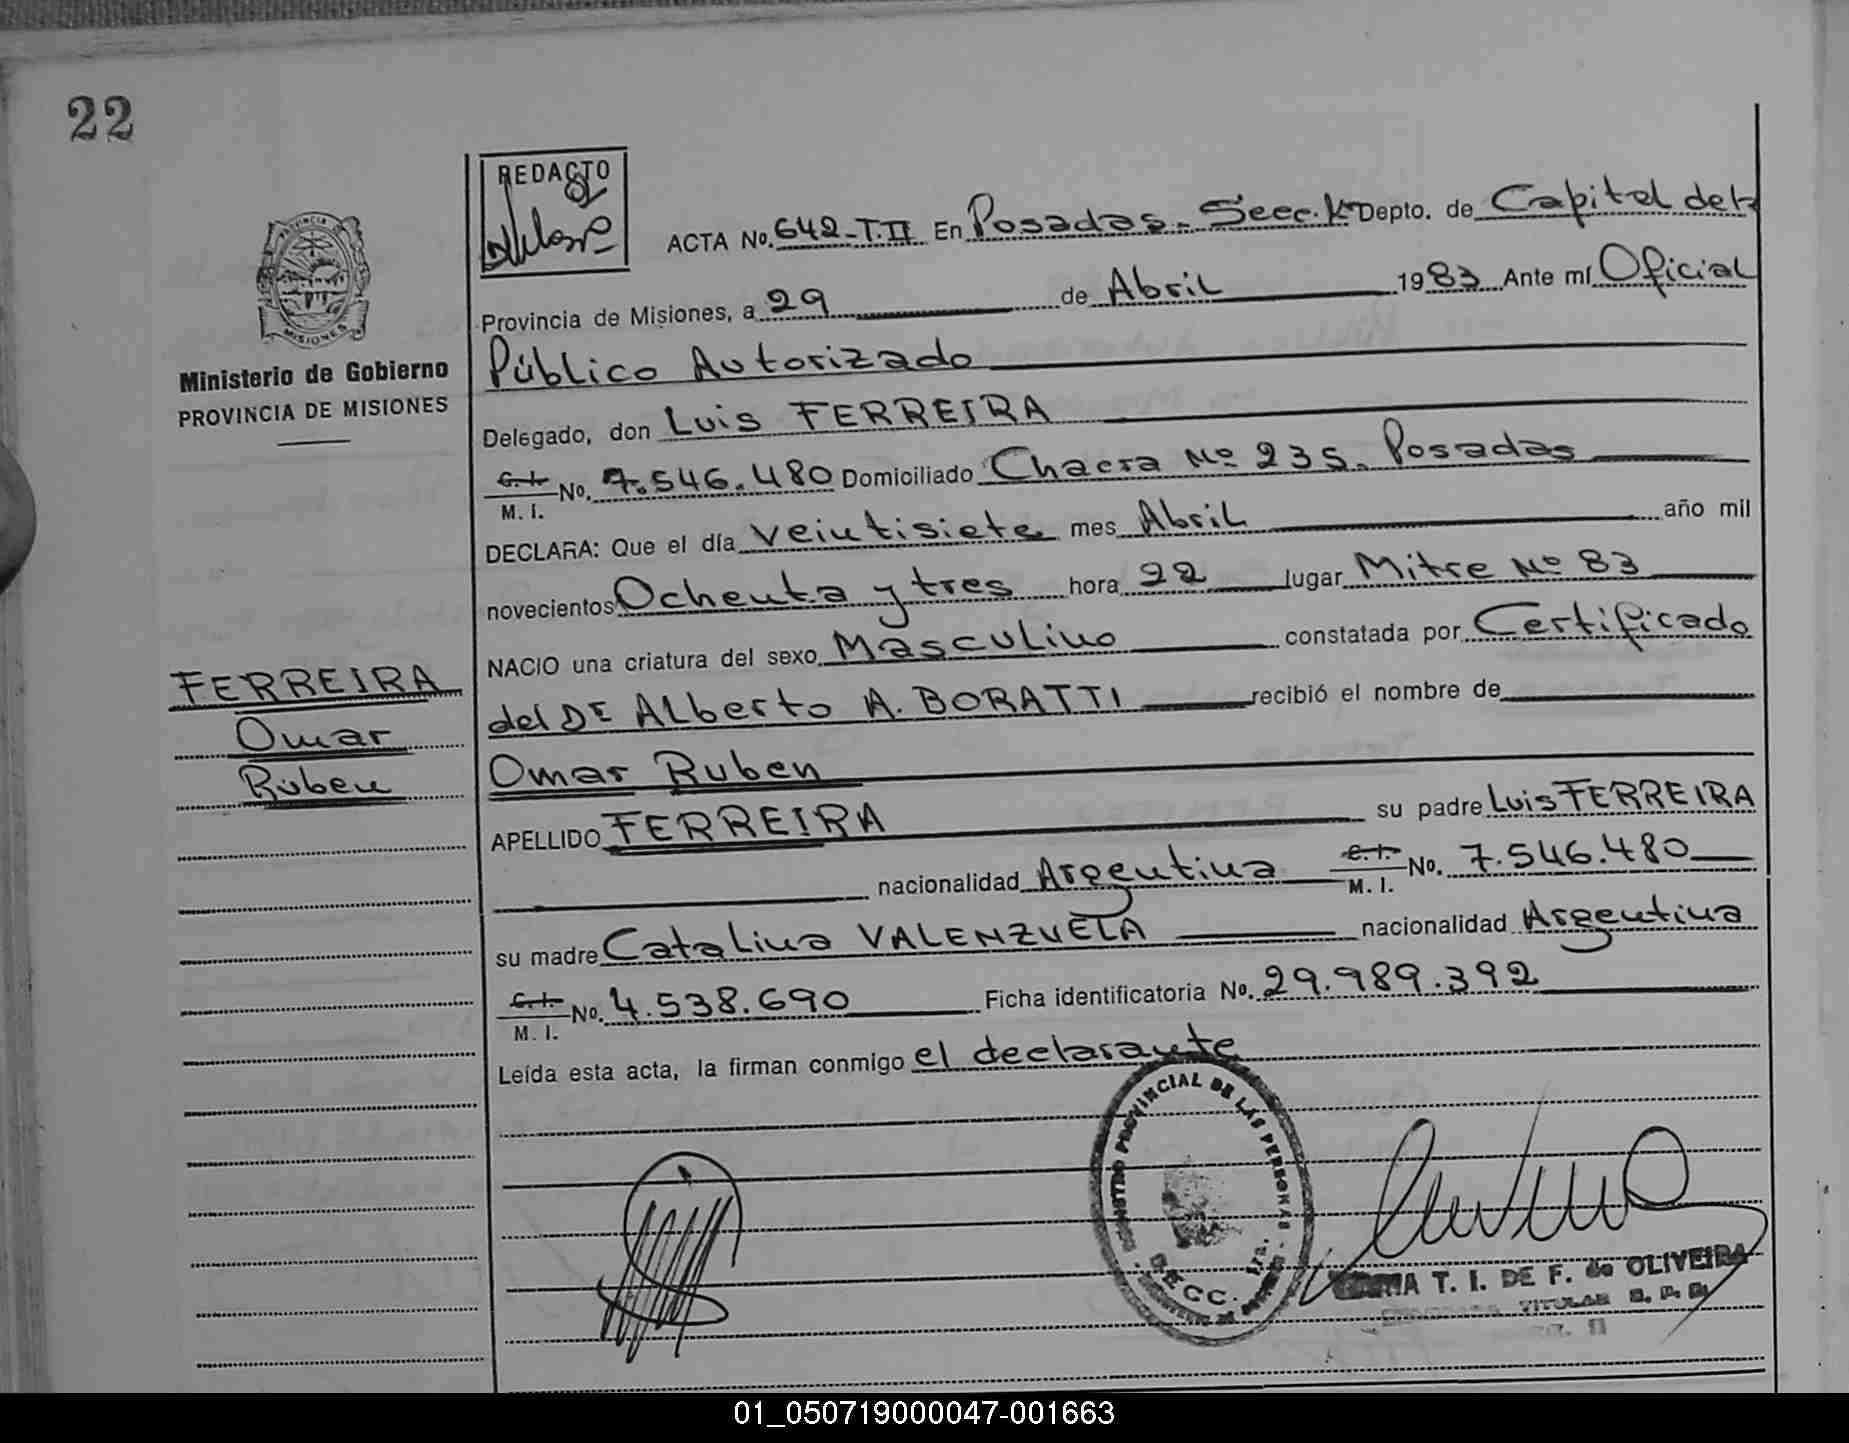 22
REDACTO
ACTA No. 642-T.II En Posadas.- Secc. 1ª Depto. de Capital de la
Provincia de Misiones, a 29 de Abril 1983 Ante mí Oficial
Público Autorizado
Ministerio de Gobierno
PROVINCIA DE MISIONES
Delegado, don Luis FERREIRA
C.I. M. I. No. 7.546.480 Domiciliado Chacra Nº 235. Posadas
DECLARA: Que el día veintisiete mes Abril año mil
novecientos Ochenta y tres hora 22 lugar Mitre Nº 83
NACIO una criatura del sexo Masculino constatada por Certificado
del Dr Alberto A. BORATTI recibió el nombre de
Omar Ruben
FERREIRA
Omar
Ruben
APELLIDO FERREIRA su padre Luis FERREIRA
nacionalidad Argentina C.I. M. I. No. 7.546.480
su madre Catalina VALENZUELA nacionalidad Argentina
C.I. M. I. No. 4.538.690 Ficha identificatoria No. 29.989.392
Leída esta acta, la firman conmigo el declarante
REGISTRO PROVINCIAL DE LAS PERSONAS
SECC. 1ra.
T. I. DE F. de OLIVEIRA
TITULAR
01_050719000047-001663